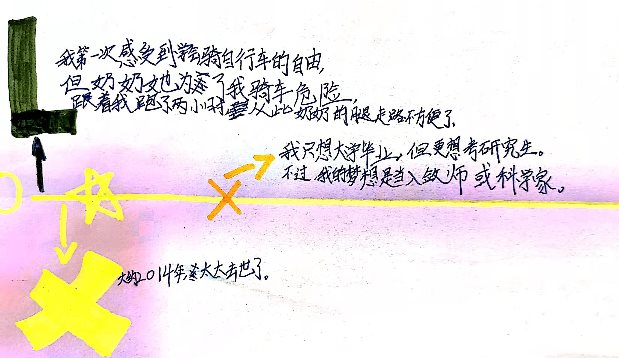 我第一次感受到骑自行车的自由,
但奶奶她也为了我骑车危险,
跟着我跑了两小时从此奶奶的腿走路不方便了.
我只想大学毕业,但更想考研究生。
不过我的梦想是当入教师或科学家。
大约2014年,老太太去世了。